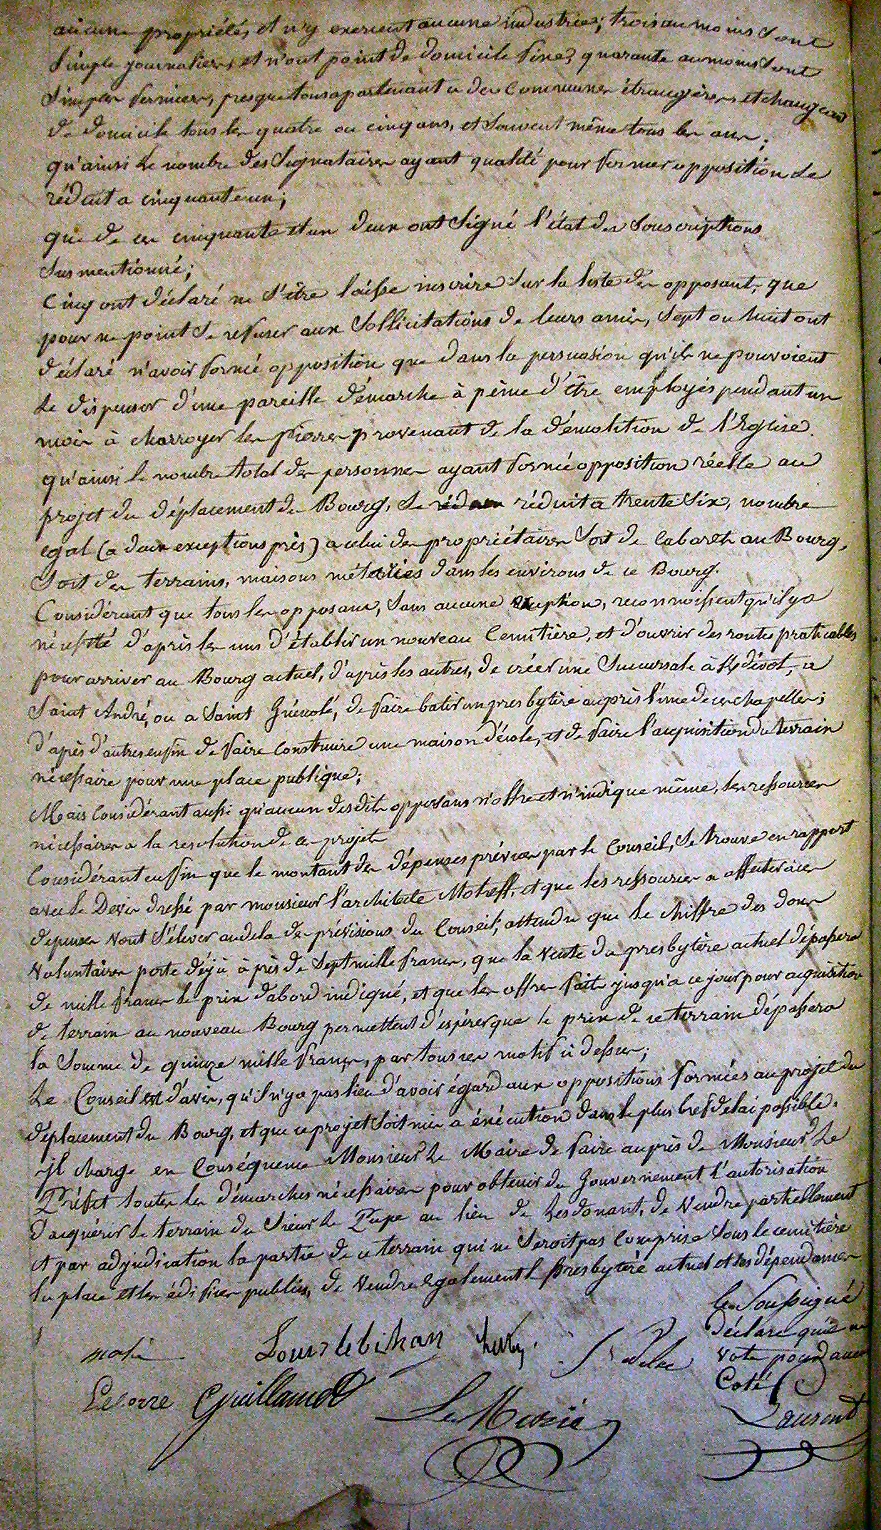 aucune propriétés et n'y exercent aucune industries; trois au moins sont
simple journaliers et n'ont point de domicile fixe; quarante au moins sont
simples fermiers, presque tous apartenant a des communes étrangères et changent
de domicile tous les quatre ou cinq ans, et souvent même tous les ans;
qu'ainsi le nombre des signataires ayant qualité pour former opposition se
réduit a cinquante un;
que de ces cinquante et un deux ont signé l'état des souscriptions
susmentionné;
Cinq ont déclaré ne s'être laissé inscrire sur la liste des opposant, que
pour ne point se refuser aux sollicitations de leurs amis, sept ou huit ont
déclaré n'avoir formé opposition que dans la persuasion qu'ils ne pouvoient
se dispenser d'une pareille démarche à peine d'être employés pendant un
mois à charroyer les pierres provenant de la démolition de l'Eglise.
qu'ainsi le nombre total des personnes ayant formé opposition réelle au
projet du déplacement du Bourg, se réduit a trente six, nombre
egal (a deux exceptions près) a celui des propriétaires soit de cabarets au Bourg,
soit des terrains, maisons métairies dans les environs de ce Bourg.
Considérant que tous les opposans, sans aucune exception, reconnoissent qu'il y a
nécessité d'après les uns d'établir un nouveau Cemitière, et d'ouvrir des routes praticables
pour arriver au Bourg actuel, d'après les autres, de créer une Succursale à Kdévot, a
Saint André, ou a Saint Guénolé, de faire batir un presbytère auprès l'une de ces chapelles;
d'après d'autres enfin de faire construire une maison d'école, et de faire l'acquisition du terrain
nécessaire pour une place publique;
Mais considérant aussi qu'aucun desdits opposans n'offre et n'indique même, les ressources
nécessaires a la resolution de ces projets
Considérant enfin que le montant des dépenses prévues par le Conseil, se trouve en rapport
avec le Devis dressé par monsieur l'architecte Motreff, et que les ressources a affecter à ces
dépenses vont s'élever audela des prévisions du Conseil, attendu que le chiffre des dons
volontaires porte déjà à près de sept mille francs, que la vente du presbytère actuel dépassera
de mille francs le prix d'abord indiqué, et que les offres faites jusqu'a ce jour pour acquisition
de terrain au nouveau Bourg permettent d'espérer que le prix de ce terrain dépassera
la somme de quinze mille francs, par tous ces motifs ci dessus;
Le Conseil est d'avis, qu'il n'y a pas lieu d'avoir égard aux oppositions formées au projet du
déplacement du Bourg, et que ce projet soit mis a exécution dans le plus bref délai possible.
Il charge en conséquence Monsieur le Maire de faire auprès de Monsieur Le
Préfet toutes les démarches nécessaires pour obtenir du Gouvernement l'autorisation
d'acquérir le terrain du Sieur Le Pape au lieu de Lesdonant, de vendre partiellement
et par adjudication la partie de ce terrain qui ne seroit pas comprise sous le cemitière
la place et les édifices publics, de vendre également le presbytère actuel et les dépendances
le soussigné
déclare que ne
vote pour aucun
Coté
Laurent
Louis le bihan
Guillamet